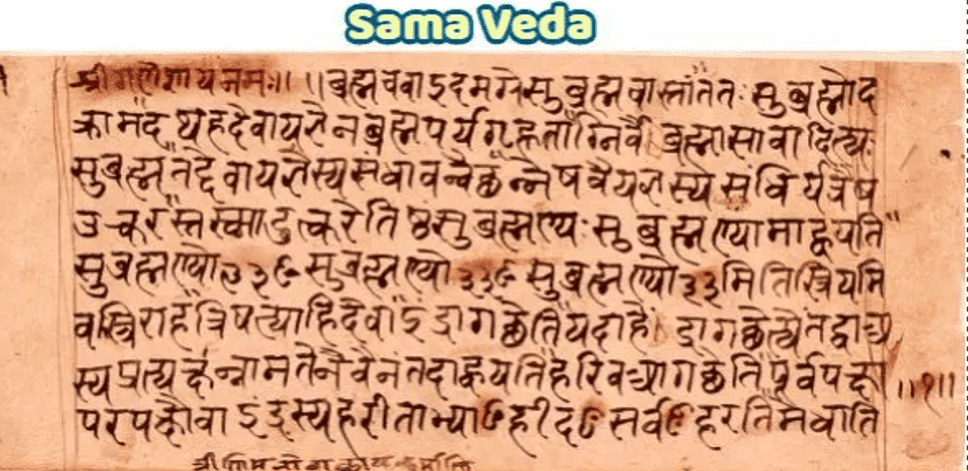 Sama Veda
श्रीगणेशायनमः॥ ॥ब्रह्मचवाइदमग्रेसुब्रह्मचास्तांततःसुब्रह्मोद
क्रामदथहदेवायज्ञेनब्रह्मपर्यगृह्णताग्निर्वैब्रह्मासावादित्यः
सुब्रह्मतद्देवायज्ञस्य
यज्ञस्यसंधिर्यत्रैष
उत्करस्तस्मादुत्करेतिष्ठंसुब्रह्मण्यःसुब्रह्मण्यामाह्वयति
सुब्रह्मण्यो३ सुब्रह्मण्यो३ सुब्रह्मण्यो३मितित्रिय
वस्त्रिराहत्रिषत्याहिदेवाइंद्रागच्छेतियदाहेंद्रागच्छेत्येतद्वाअ
स्यप्रत्यक्षंनामतेनैवैनंतदाह्वयतिहरिवआगच्छेतिपूर्वपक्षा ॥१॥
परपक्षौवाइंद्रस्यहरीताभ्याꣳहीदꣳसर्वꣳहरति